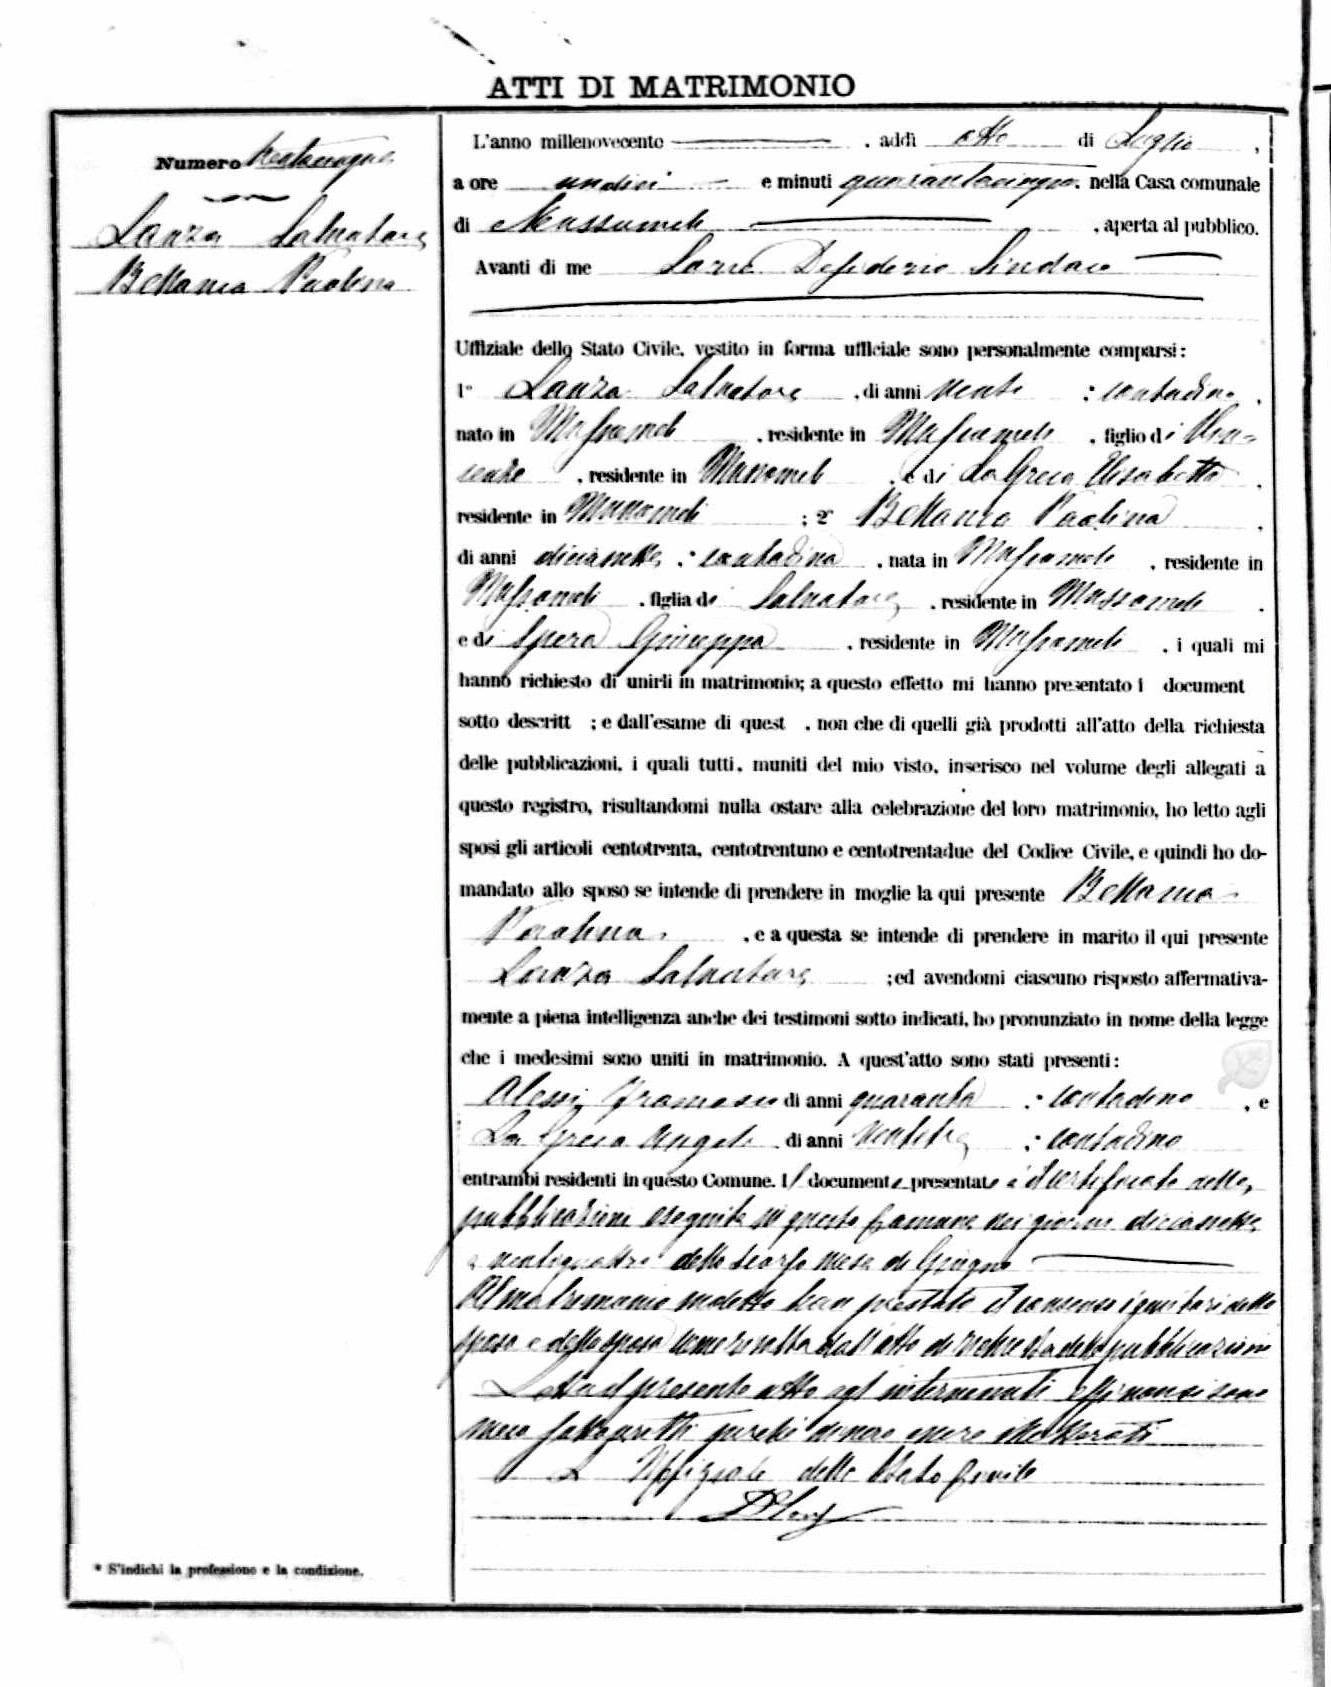 ATTI DI MATRIMONIO
Numero
Lanza Salvatore
Bellanca Paolina
L'anno millenovecento , addì otto di Luglio ,
a ore undici e minuti quarantacinque , nella Casa comunale
di Mussomeli , aperta al pubblico.
Avanti di me Desiderio Sindaco
Uffiziale dello Stato Civile, vestito in forma ufficiale sono personalmente comparsi:
1° Lanza Salvatore , di anni venti : contadino ,
nato in Mussomeli , residente in Mussomeli , figlio di Vin-
cenzo , residente in Mussomeli , e di La Greca Elisabetta ,
residente in Mussomeli ; 2° Bellanca Paolina ,
di anni diciassette : contadina , nata in Mussomeli , residente in
Mussomeli , figlia di Salvatore , residente in Mussomeli ,
e di Spera Giuseppa , residente in Mussomeli , i quali mi
hanno richiesto di unirli in matrimonio; a questo effetto mi hanno presentato i document
sotto descritt ; e dall'esame di quest , non che di quelli già prodotti all'atto della richiesta
delle pubblicazioni, i quali tutti, muniti del mio visto, inserisco nel volume degli allegati a
questo registro, risultandomi nulla ostare alla celebrazione del loro matrimonio, ho letto agli
sposi gli articoli centotrenta, centotrentuno e centotrentadue del Codice Civile, e quindi ho do-
mandato allo sposo se intende di prendere in moglie la qui presente Bellanca
Paolina , e a questa se intende di prendere in marito il qui presente
Lanza Salvatore ; ed avendomi ciascuno risposto affermativa-
mente a piena intelligenza anche dei testimoni sotto indicati, ho pronunziato in nome della legge
che i medesimi sono uniti in matrimonio. A quest'atto sono stati presenti:
Alessi Francesco di anni quaranta : contadino , e
La Greca Angelo di anni ventitre : contadino
entrambi residenti in questo Comune. Il documento presentato è il certificato delle
pubblicazioni eseguite in questo Comune nei giorni diciassette
e ventiquattro dello scorso mese di Giugno
Al matrimonio suddetto han prestato il consenso i genitori dello
sposo e della sposa come risulta dall'atto di richiesta delle pubblicazioni
Letto il presente atto agl'intervenuti essi non si sono
meco sottoscritti perchè dissero essere illetterati
L'Uffiziale dello Stato Civile
* S'indichi la professione e la condizione.